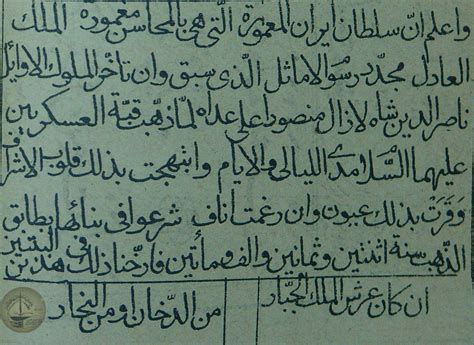 واعلم انّ سلطان ايران المعمورة الّتي هي بالمحاسن معموره الملك
العادل مجدّد رسوم الاماثل الّذي سبق وان تاخّر الملوك الاوائل
ناصر الدين شاه لا زال منصورا على عداه لمّا ذهّب قبّة العسكريين
عليهما السّلام مدى الليالي والايام وابتهجت بذلك قلوب الاشراف
وقرّت بذلك عيون وان رغمت اناف شرعوا في بنائها بطابق
الذّهب سنة اثنتين وثمانين والف ومأتين فارّخنا ذلك في البيتين هذين
ان كان عرش الملك الجبّار
من الدّخان او من البخار